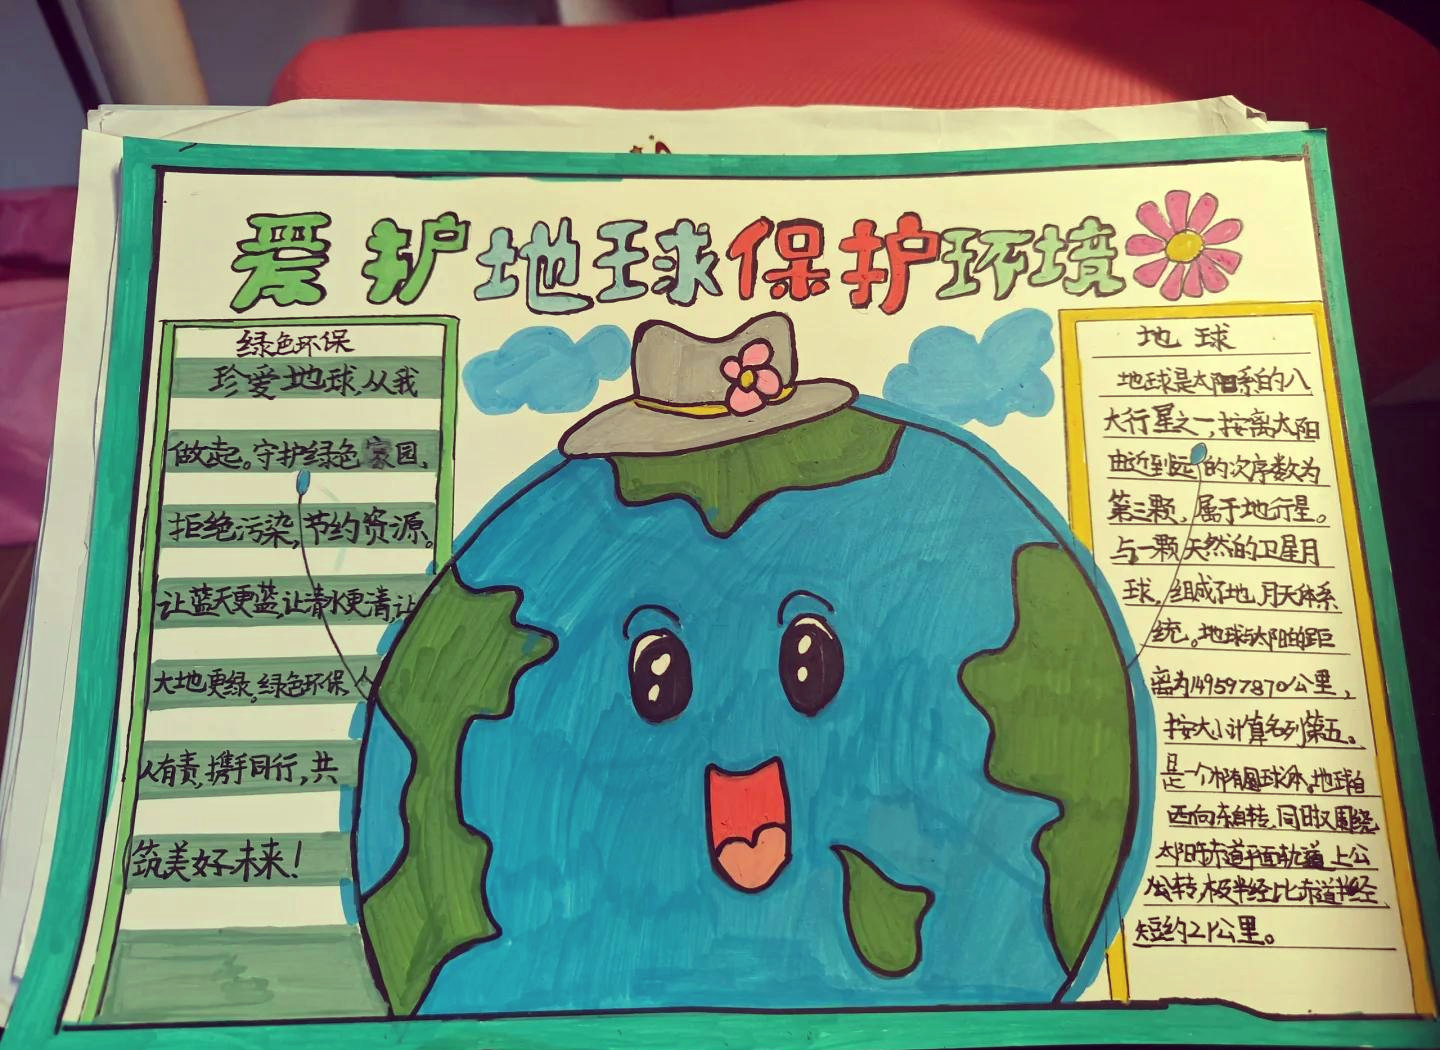 爱护地球保护环境
绿色环保
珍爱地球,从我
做起。守护绿色家园,
拒绝污染,节约资源。
让蓝天更蓝,让清水更清,让
大地更绿,绿色环保人
人有责,携手同行,共
筑美好未来!
地球
地球是太阳系的八
大行星之一,按离太阳
由近到远的次序数为
第三颗,属于地行星。
与一颗天然的卫星月
球,组成了地月天体系
统。地球与太阳的距
离为149597870公里,
按大小计算名列第五。
是一个椭圆球体。地球自
西向东自转,同时又围绕
太阳 赤道平面轨道上公
公转,极半经比赤道半经
短约21公里。